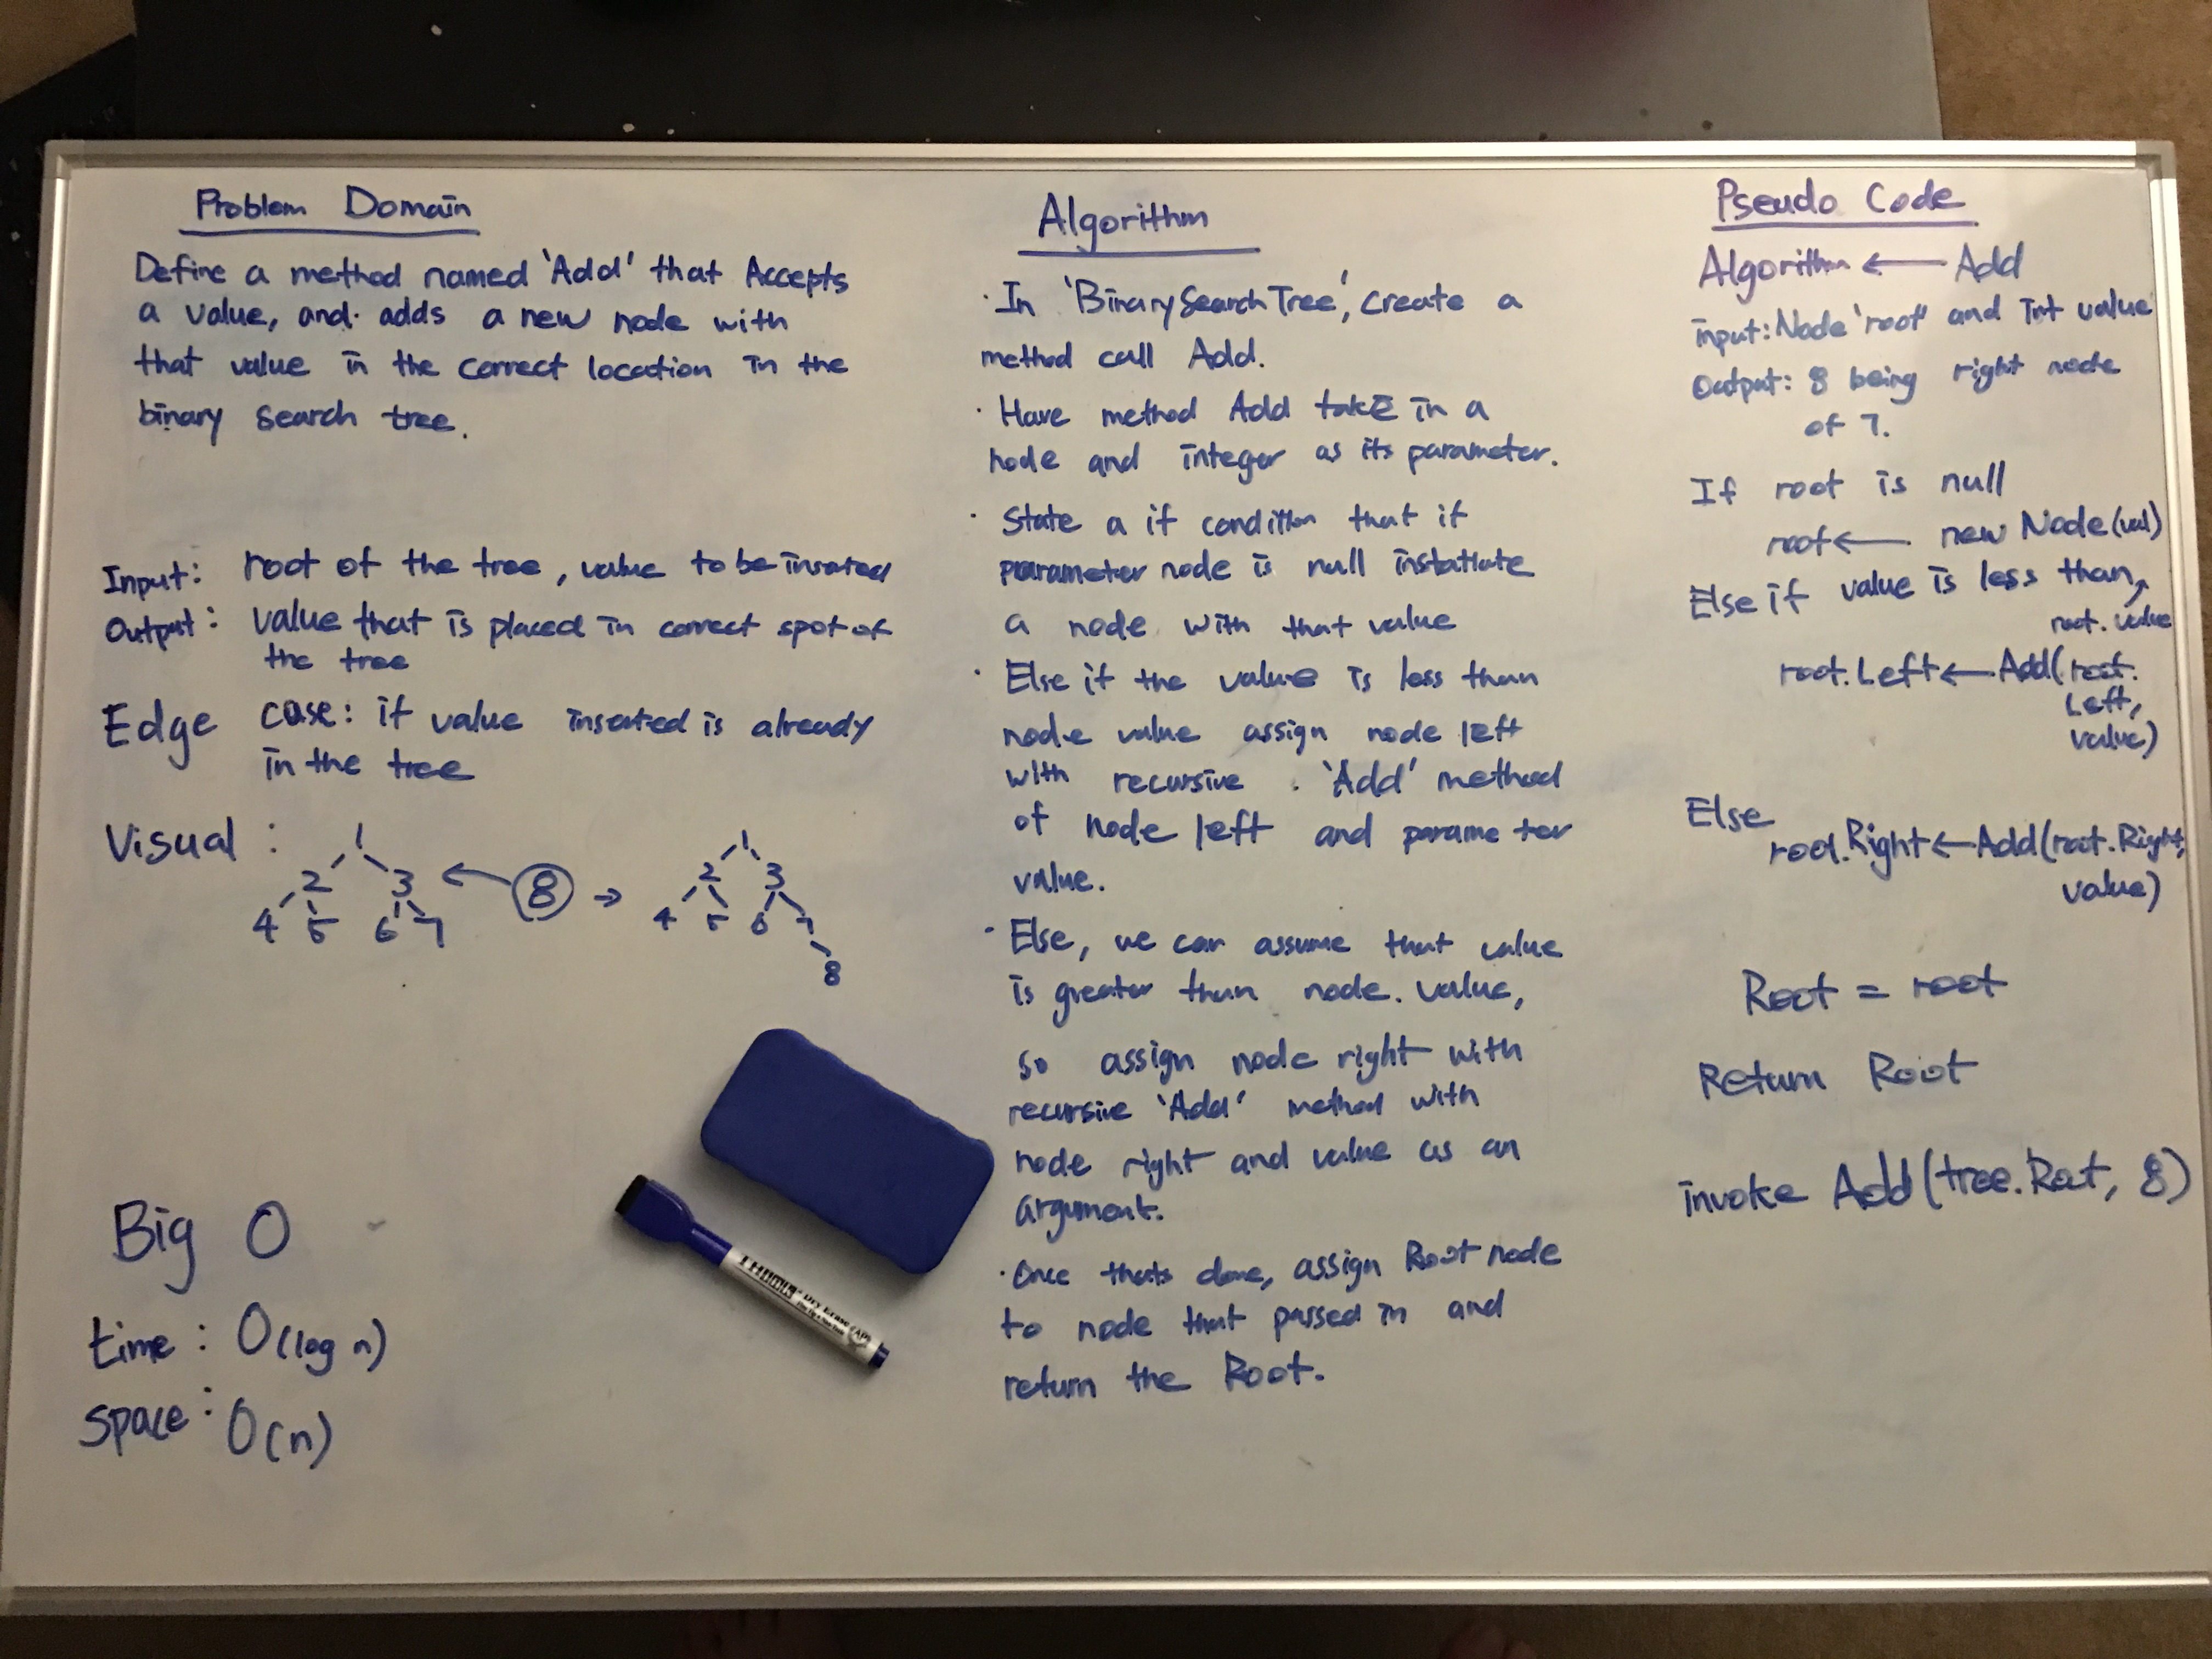 Problem Domain
Define a method named 'Add' that Accepts
a value, and adds a new node with
that value in the correct location in the
binary search tree.
Input: root of the tree, value to be insrated
Output: value that is placed in correct spot of
the tree
Edge case: if value insrated is already
in the tree
Visual:
1
2 3
4 5 6 7
8 →
1
2 3
4 5 6 7
8
Big O
time: O(log n)
space: O(n)
Algorithm
· In 'BinarySearchTree', create a
method call Add.
· Have method Add take in a
node and integer as its parameter.
· State a if condition that if
parameter node is null instatiate
a node with that value
· Else if the value is less than
node value assign node left
with recursive 'Add' method
of node left and parameter
value.
· Else, we can assume that value
is greater than node. value,
so assign node right with
recursive 'Add' method with
node right and value as an
argument.
· Once thats done, assign Root node
to node that passed in and
return the Root.
Pseudo Code
Algorithm ← Add
input: Node 'root' and int value
Output: 8 being right node
of 7.
If root is null
root ← new Node(val)
Else if value is less than
root.value
root.Left ← Add(root.
Left,
value)
Else
root.Right ← Add(root.Right,
value)
Root = root
Return Root
invoke Add(tree.Root, 8)
Dry Erase